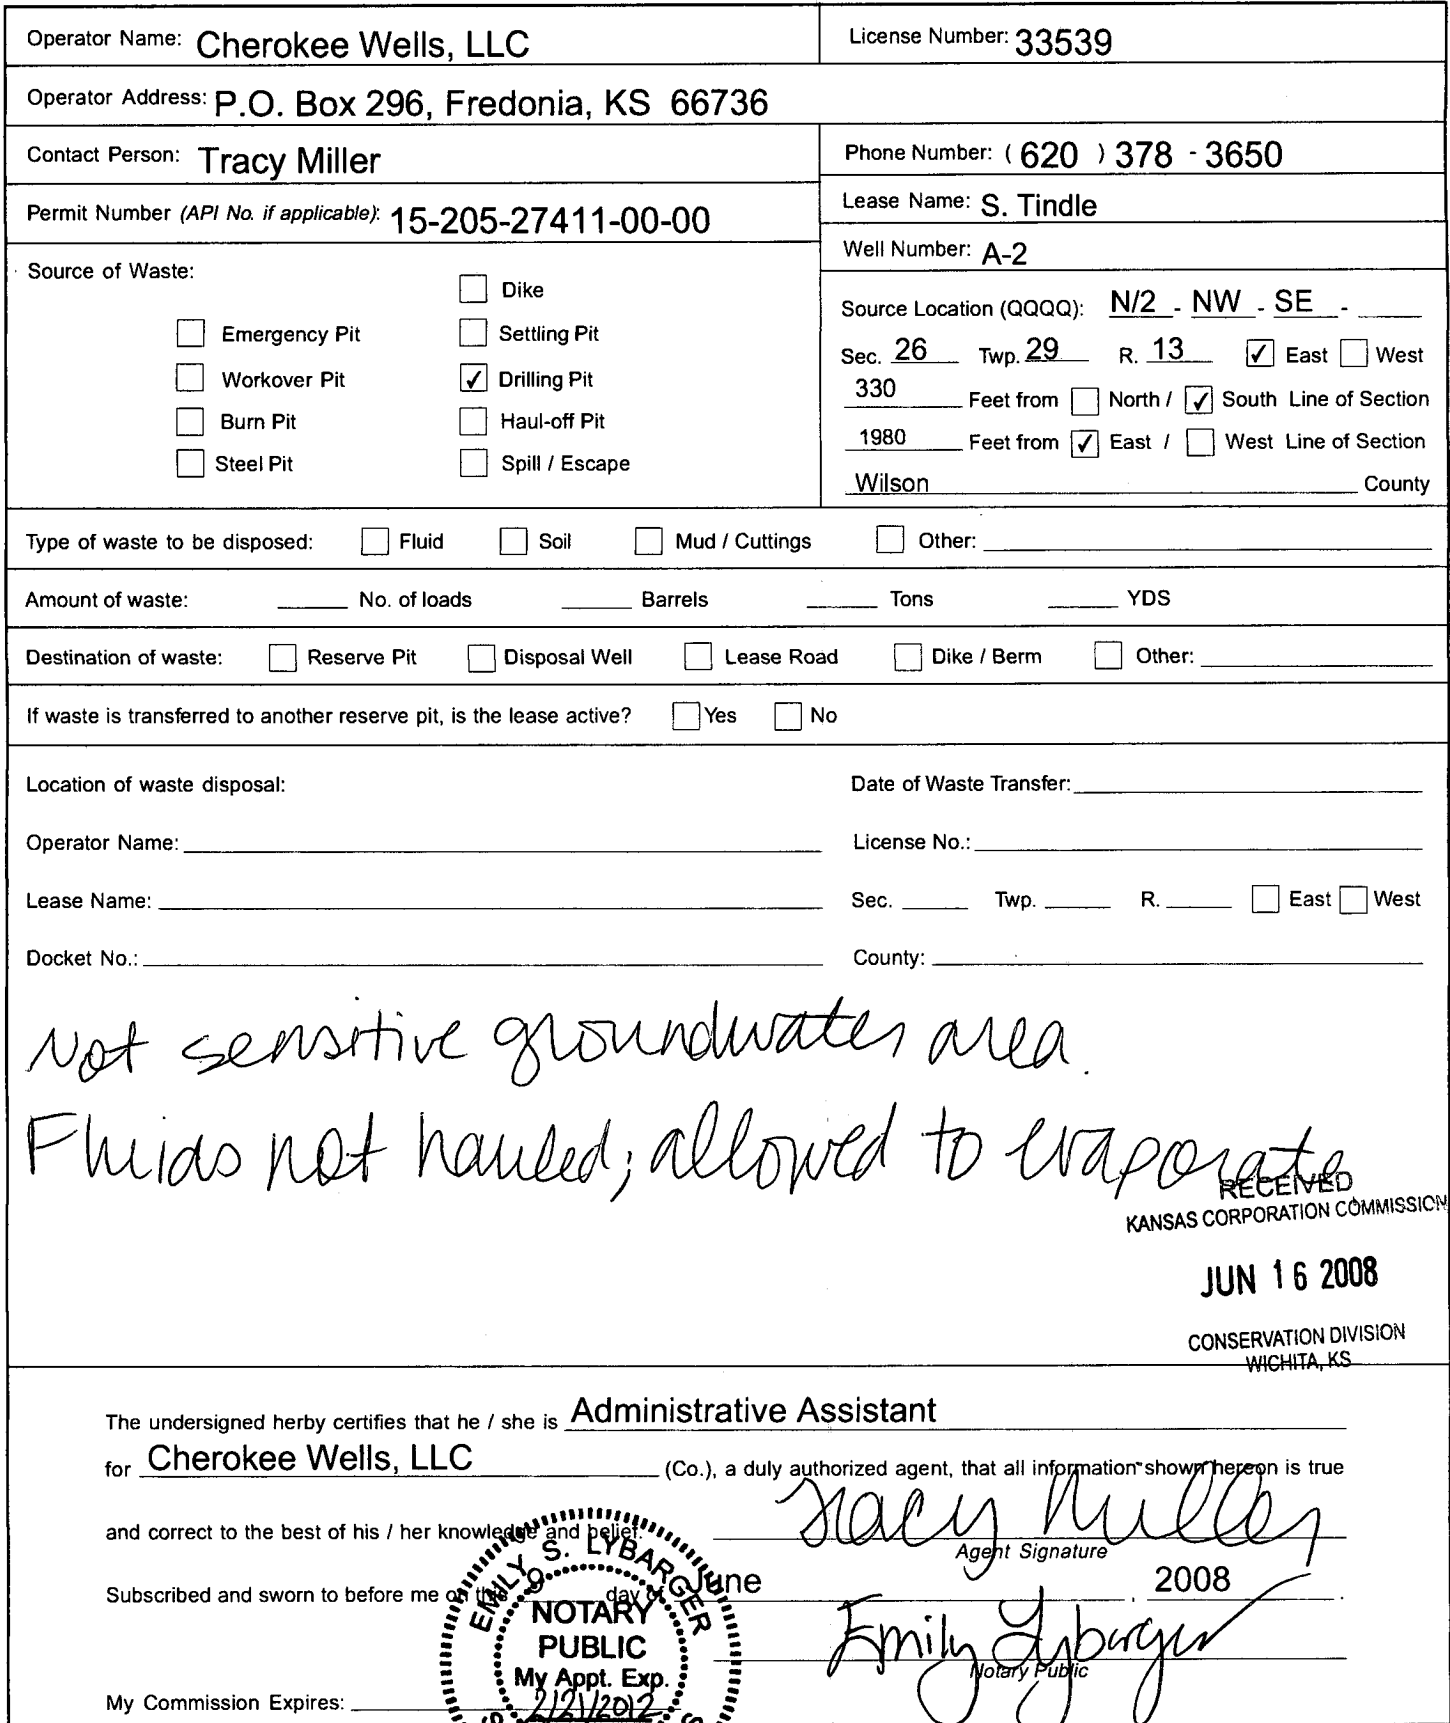 Operator Name: Cherokee Wells, LLC
License Number: 33539
Operator Address: P.O. Box 296, Fredonia, KS 66736
Contact Person: Tracy Miller
Phone Number: ( 620 ) 378 - 3650
Permit Number (API No. if applicable): 15-205-27411-00-00
Lease Name: S. Tindle
Well Number: A-2
Source of Waste:
Dike
Emergency Pit
Settling Pit
Workover Pit
✓ Drilling Pit
Burn Pit
Haul-off Pit
Steel Pit
Spill / Escape
Source Location (QQQQ): N/2 - NW - SE -
Sec. 26 Twp. 29 R. 13 ✓ East West
330 Feet from North / ✓ South Line of Section
1980 Feet from ✓ East / West Line of Section
Wilson County
Type of waste to be disposed: Fluid Soil Mud / Cuttings Other:
Amount of waste: No. of loads Barrels Tons YDS
Destination of waste: Reserve Pit Disposal Well Lease Road Dike / Berm Other:
If waste is transferred to another reserve pit, is the lease active? Yes No
Location of waste disposal:
Date of Waste Transfer:
Operator Name:
License No.:
Lease Name:
Sec. Twp. R. East West
Docket No.:
County:
Not sensitive groundwater area.
Fluids not hauled; allowed to evaporate
RECEIVED
KANSAS CORPORATION COMMISSION
JUN 16 2008
CONSERVATION DIVISION
WICHITA, KS
The undersigned herby certifies that he / she is Administrative Assistant
for Cherokee Wells, LLC (Co.), a duly authorized agent, that all information shown hereon is true
and correct to the best of his / her knowledge and belief.
Tracy Miller
Agent Signature
Subscribed and sworn to before me on this 9 day of June , 2008 .
Emily Lybarger
Notary Public
My Commission Expires:
EMILY S. LYBARGER
NOTARY
PUBLIC
My Appt. Exp.
2/21/2012